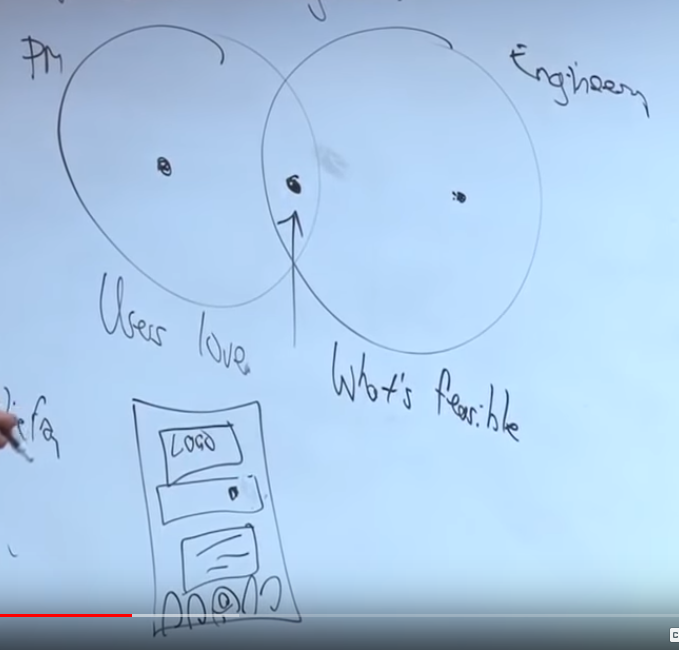 PM
Engineers
Users love
What's feasible
LOGO